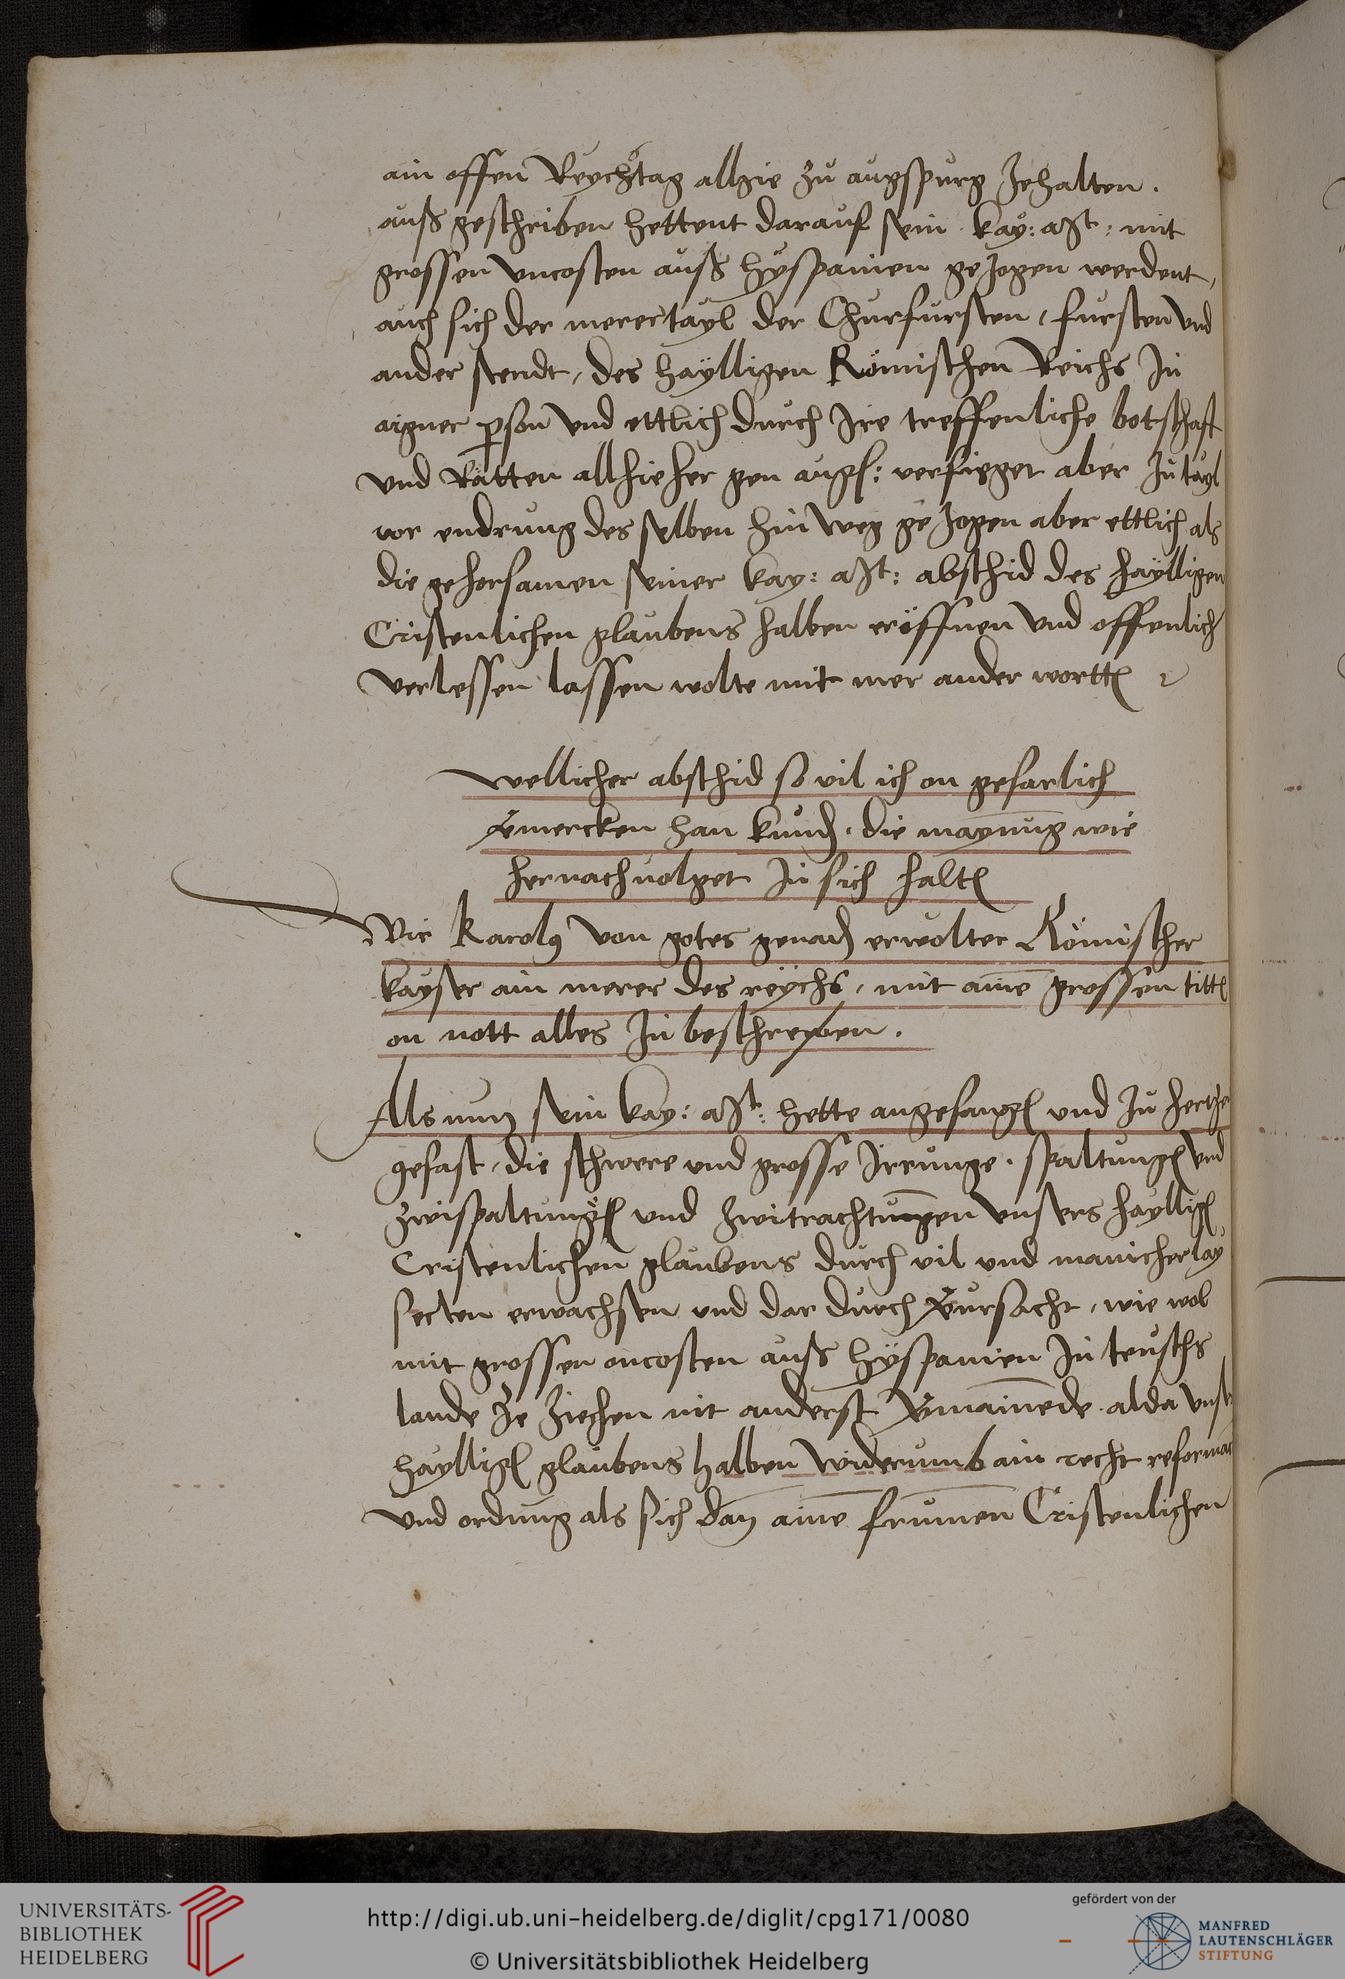 ain offen Reychßtag allhie zu augspurg zehalten.
auß geschriben hettent darauf sein kay: Mt: mit
grossen uncosten auß hyspanien gezogen werdent,
auch sich der merertayl der Churfursten, fursten und
ander stendt, des haylligen Römischen Reichs In
aigner pson und ettlich durch Ire treffenliche botschafft
und Rätten allhieher gen augs: verfieget aber zu tayl
vor endrung des selben hinweg gezogen aber ettlich als
die gehorsamen seiner kay: Mt: abschid des haylligen
Cristenlichen glaubens halben eröffnen und offenlich
verlessen lassen wolte mit mer ander wortt
wellicher abschid so vil ich on gefarlich
vmercken han kund, die maynung wie
hernach volget In sich halt
Wir Karolus von gotes genad erwolter Römischer
kayser ain merer des reychs, mit aine grossen titt
on nott alles zu beschreyben.
Als nun sein kay: Mt: hette angefang und zu hertze
gefast, die schwere und grosse Irrunge, spaltung und
zwispaltung und zwitrachtungen unsers haylligen
Cristenlichen glaubens durch vil und manicherlay
secten erwachsen und dar durch vursacht, wie wol
mit grossen oncosten auß hyspanien In teuschs
lande ze ziehen nit anderst vmainede alda
haylligen glaubens halben widerumb ain recht
und ordnung als sich dan aine frumen Cristenlichen
UNIVERSITÄTS-
BIBLIOTHEK
HEIDELBERG
http://digi.ub.uni-heidelberg.de/diglit/cpg171/0080
© Universitätsbibliothek Heidelberg
gefördert von der
MANFRED
LAUTENSCHLÄGER
STIFTUNG